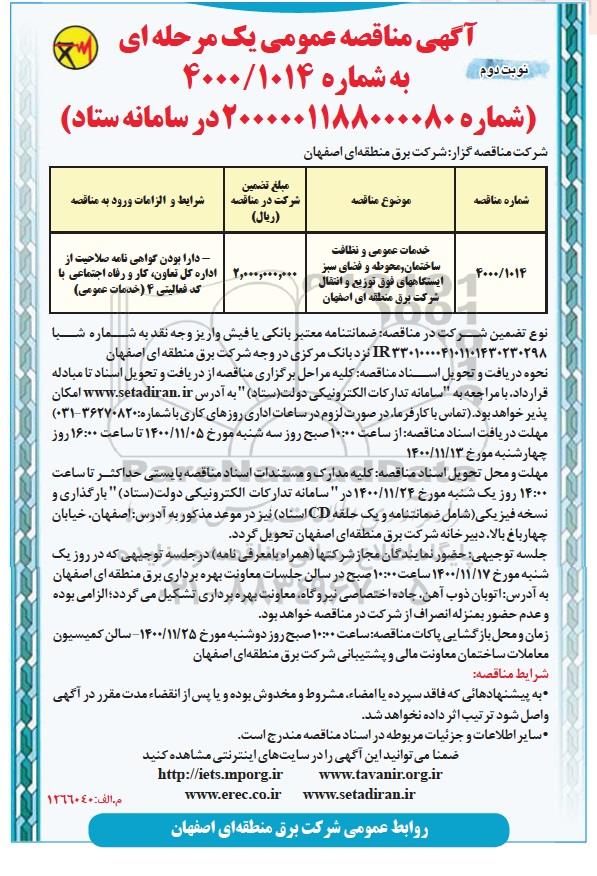 آگهی مناقصه عمومی یک مرحله ای
به شماره ۴۰۰۰/۱۰۱۴
نوبت دوم
(شماره ۲۰۰۰۰۰۱۱۸۸۰۰۰۰۸۰ در سامانه ستاد)
شرکت مناقصه گزار: شرکت برق منطقه‌ای اصفهان
شماره مناقصه
موضوع مناقصه
مبلغ تضمین شرکت در مناقصه (ریال)
شرایط و الزامات ورود به مناقصه
۴۰۰۰/۱۰۱۴
خدمات عمومی و نظافت
ساختمان,محوطه و فضای سبز
ایستگاههای فوق توزیع و انتقال
شرکت برق منطقه ای اصفهان
۲,۰۰۰,۰۰۰,۰۰۰
– دارا بودن گواهی نامه صلاحیت از
اداره کل تعاون، کار و رفاه اجتماعی با
کد فعالیتی ۴ (خدمات عمومی)
نوع تضمین شرکت در مناقصه: ضمانتنامه معتبر بانکی یا فیش واریز وجه نقد به شماره شبا
IR ۳۳۰۱۰۰۰۰۴۱۰۱۱۰۱۴۳۰۲۳۰۲۹۸ نزد بانک مرکزی در وجه شرکت برق منطقه ای اصفهان
نحوه دریافت و تحویل اسناد مناقصه: کلیه مراحل برگزاری مناقصه از دریافت و تحویل اسناد تا مبادله
قرارداد، با مراجعه به "سامانه تدارکات الکترونیکی دولت(ستاد)" به آدرس www.setadiran.ir امکان
پذیر خواهد بود. (تماس با کارفرما، در صورت لزوم در ساعات اداری روزهای کاری با شماره: ۳۶۲۷۰۸۲۰-۰۳۱)
مهلت دریافت اسناد مناقصه: از ساعت ۱۰:۰۰ صبح روز سه شنبه مورخ ۱۴۰۰/۱۱/۰۵ تا ساعت ۱۶:۰۰ روز
چهارشنبه مورخ ۱۴۰۰/۱۱/۱۳
مهلت و محل تحویل اسناد مناقصه: کلیه مدارک و مستندات اسناد مناقصه بایستی حداکثر تا ساعت
۱۴:۰۰ روز یک شنبه مورخ ۱۴۰۰/۱۱/۲۴ در "سامانه تدارکات الکترونیکی دولت(ستاد)" بارگذاری و
نسخه فیزیکی(شامل ضمانتنامه و یک حلقه CD اسناد) نیز در موعد مذکور به آدرس: اصفهان، خیابان
چهارباغ بالا، دبیرخانه شرکت برق منطقه‌ای اصفهان تحویل گردد.
جلسه توجیهی: حضور نمایندگان مجاز شرکتها (همراه با معرفی نامه) در جلسه توجیهی که در روز یک
شنبه مورخ ۱۴۰۰/۱۱/۱۷ ساعت ۱۰:۰۰ صبح در سالن جلسات معاونت بهره برداری برق منطقه ای اصفهان
به آدرس: اتوبان ذوب آهن، جاده اختصاصی نیروگاه، معاونت بهره برداری تشکیل می گردد؛ الزامی بوده
و عدم حضور بمنزله انصراف از شرکت در مناقصه خواهد بود.
زمان و محل بازگشایی پاکات مناقصه: ساعت ۱۰:۰۰ صبح روز دوشنبه مورخ ۱۴۰۰/۱۱/۲۵- سالن کمیسیون
معاملات ساختمان معاونت مالی و پشتیبانی شرکت برق منطقه‌ای اصفهان
شرایط مناقصه:
•به پیشنهادهائی که فاقد سپرده یا امضاء، مشروط و مخدوش بوده و یا پس از انقضاء مدت مقرر در آگهی
واصل شود ترتیب اثر داده نخواهد شد.
•سایر اطلاعات و جزئیات مربوطه در اسناد مناقصه مندرج است.
ضمنا می توانید این آگهی را در سایت‌های اینترنتی مشاهده کنید
http://iets.mporg.ir www.tavanir.org.ir
www.erec.co.ir www.setadiran.ir
م.الف: ۱۲۶۶۰۴۰
روابط عمومی شرکت برق منطقه‌ای اصفهان
ParsNamadData